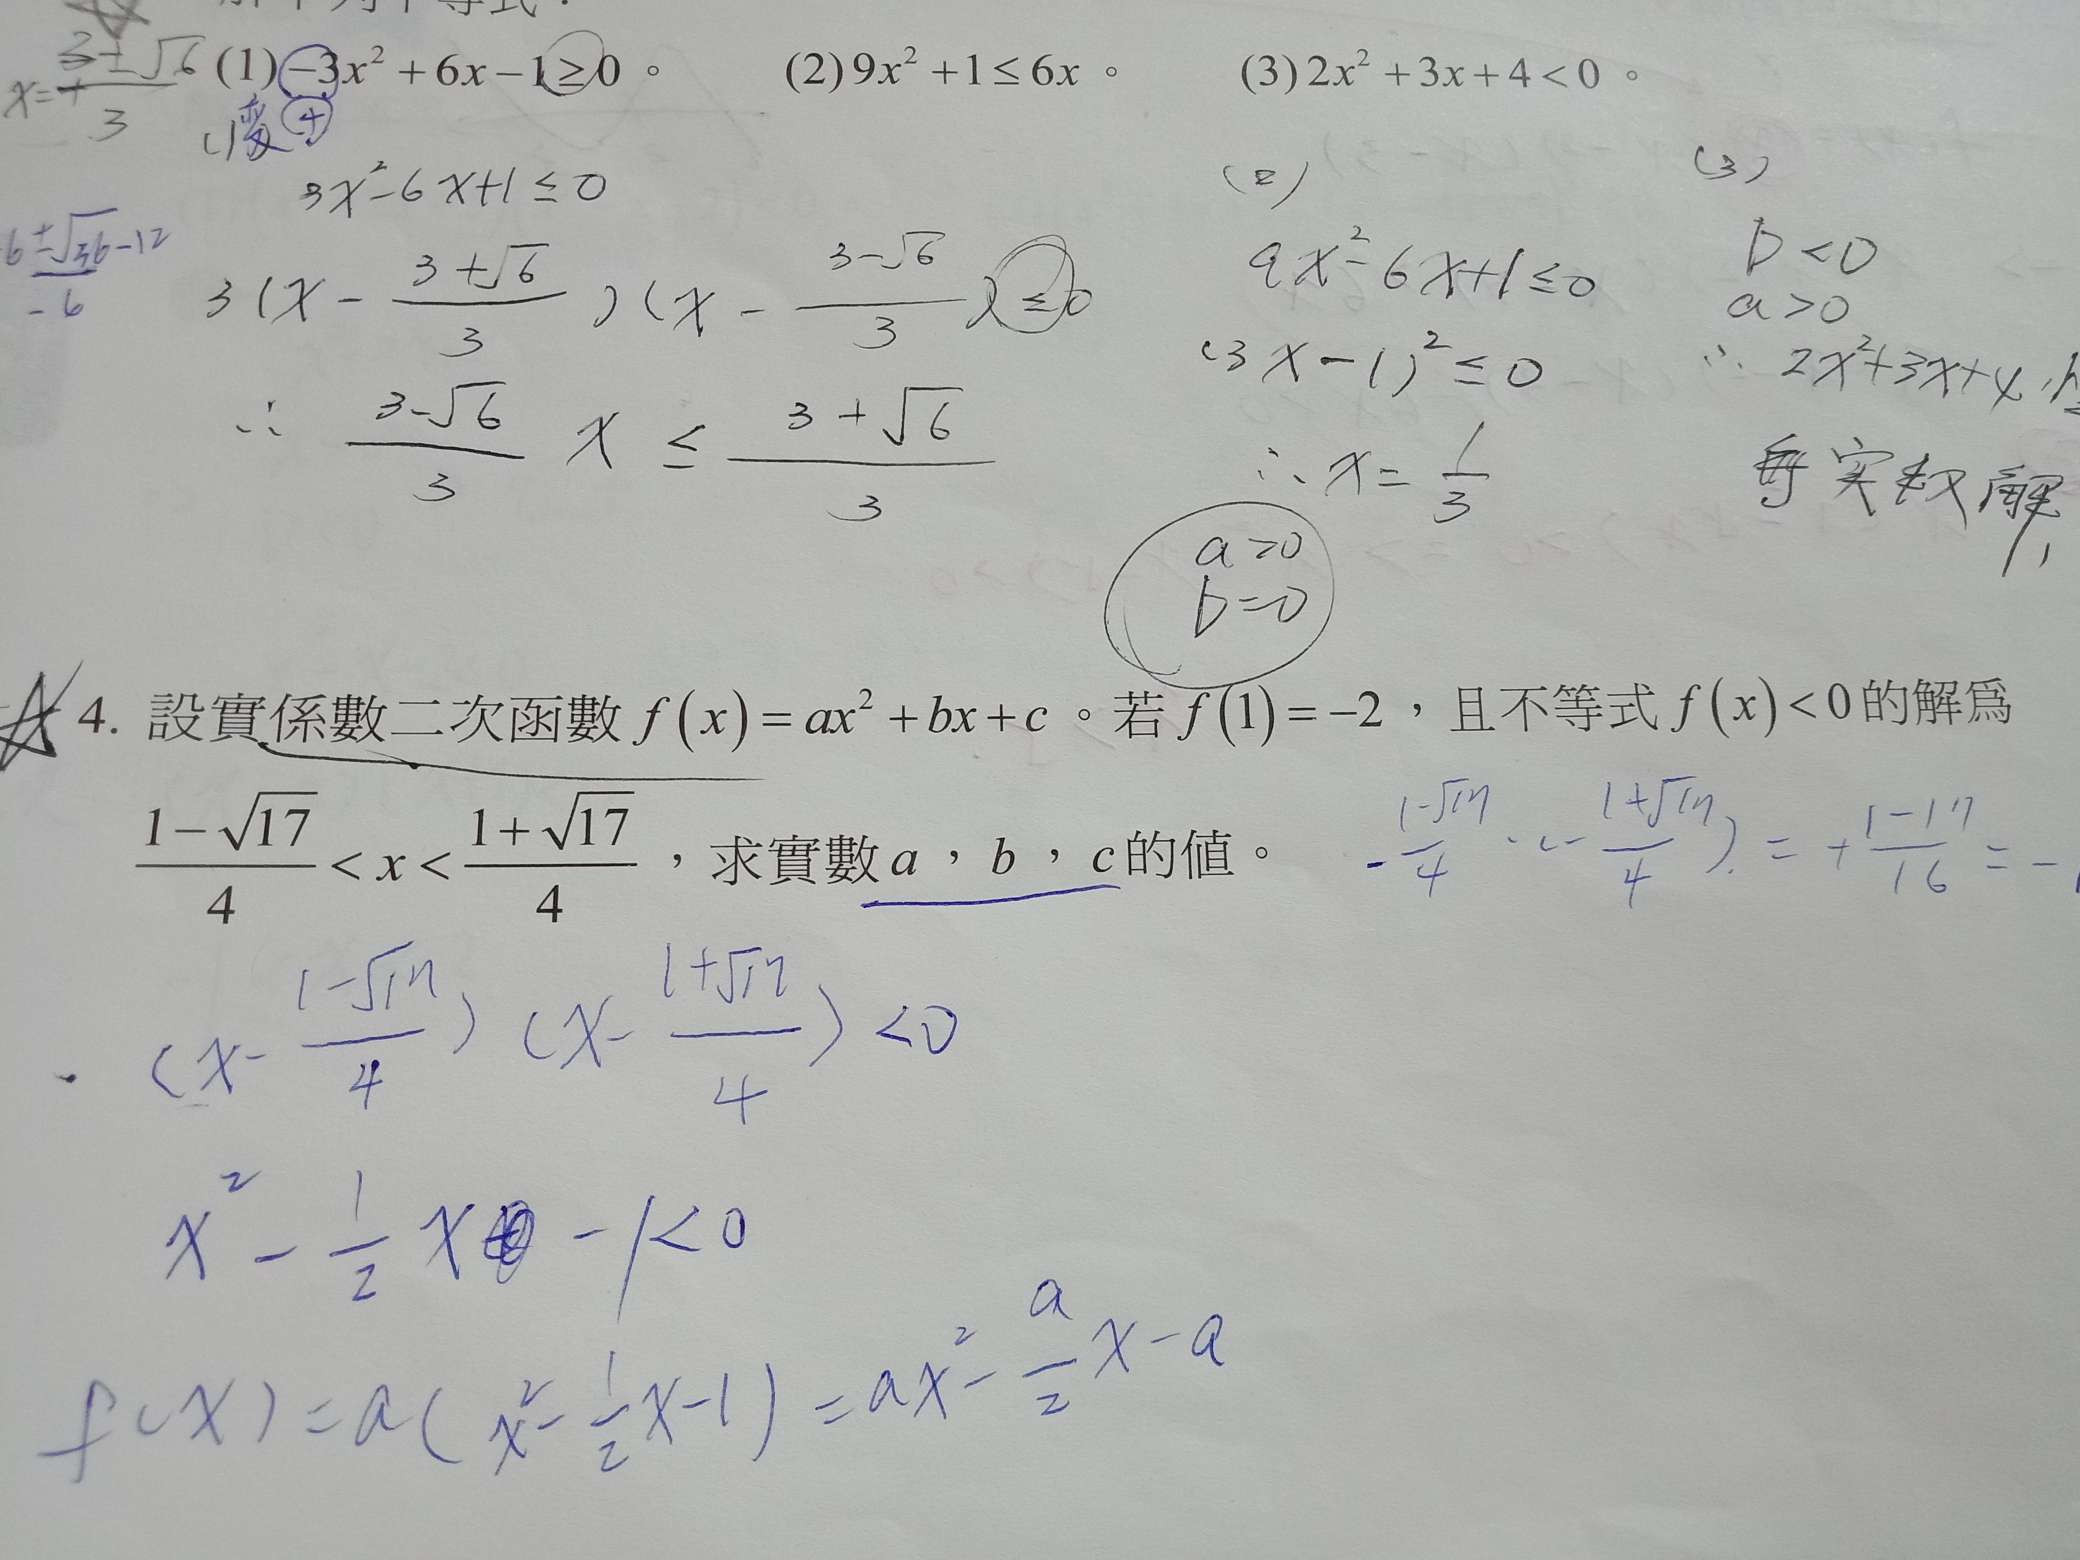 x = 3±√6 / 3
(1) −3x² + 6x − 1 ≥ 0 。 (2) 9x² + 1 ≤ 6x 。 (3) 2x² + 3x + 4 < 0 。
(1) +
3x² − 6x + 1 ≤ 0
6 ± √36−12 / −6
3(x − 3+√6 / 3)(x − 3−√6 / 3) ≤ 0
∴ 3−√6 / 3 x ≤ 3+√6 / 3
(2)
9x² − 6x + 1 ≤ 0
(3x − 1)² ≤ 0
∴ x = 1/3
a > 0
D = 0
(3)
D < 0
a > 0
∴ 2x² + 3x + 4
實数解
4. 設實係數二次函數 f(x) = ax² + bx + c 。若 f(1) = −2，且不等式 f(x) < 0 的解爲
1−√17 / 4 < x < 1+√17 / 4，求實數 a，b，c 的値。
− 1−√17 / 4 · (− 1+√17 / 4) = + 1−17 / 16 = −1
(x − 1−√17 / 4)(x − 1+√17 / 4) < 0
x² − 1/2 x − 1 < 0
f(x) = a(x² − 1/2 x − 1) = ax² − a/2 x − a